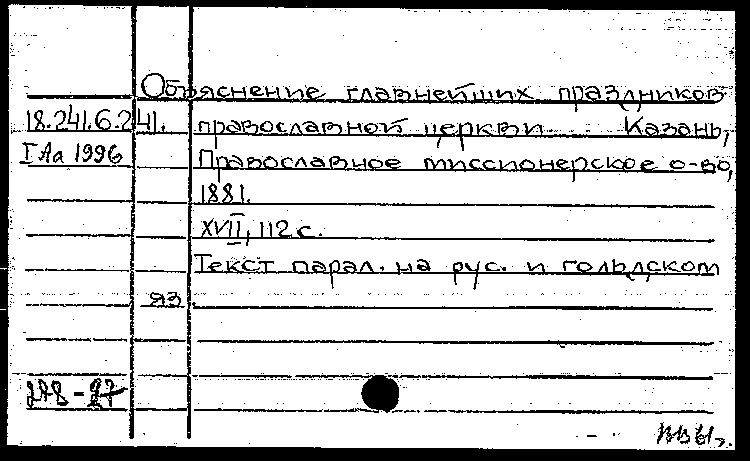 Объяснение главнейших праздников
18.241.6.241. православной церкви. Казань,
I Аа 1996 Православное миссионерское о-во,
1881.
XVII, 112 с.
Текст парал. на рус. и гольдском
яз.
278-27